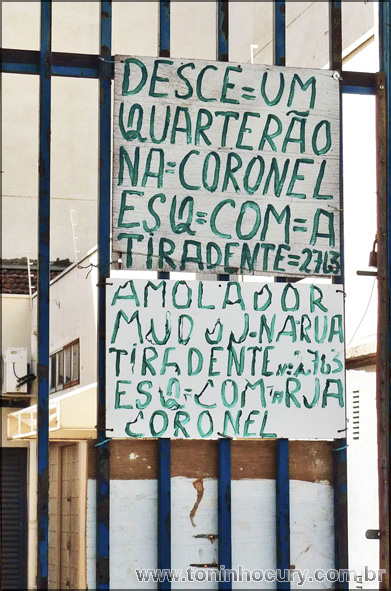 DESCE=UM
QUARTERÃO
NA=CORONEL
ESQ=COM=A
TIRADENTE=2763
AMOLADOR
MUDOU.J.NARUA
TIRADENTE Nº2.763
ESQ=COM=RUA
CORONEL
www.toninhocury.com.br